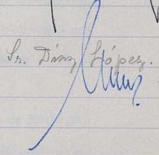 Sr. Díaz López.